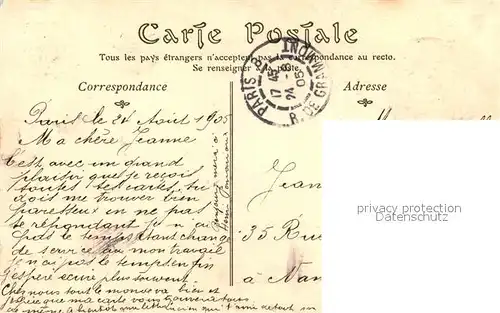 Carte Postale
Tous les pays étrangers n'acceptent pas la correspondance au recto.
Se renseigner à la poste.
Correspondance
Adresse
PARIS
R. DE GRAMMONT
17 45
24 -8
05
Paris le 24 Août 1905
Ma chère Jeanne
C'est avec un grand
plaisir que je reçois
toutes tes cartes, tu
dois me trouver bien
paresseux en ne pas
te répondant je n'ai
pas le temps étant changé
de service ou mon travail
Je n'ai pas le temps enfin
J'espère écrire plus souvent
Chez nous tout le monde va bien et
j'espère que ma carte vous
même à bientôt qui t'aime
Jean
35 Rue
à Nan
privacy protection
Datenschutz